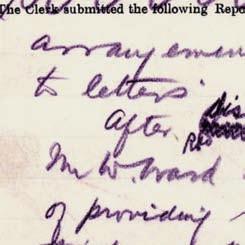 The Clerk submitted the following Repo
arrangemen
to letters
After dis
Mr W. Ward
of providing